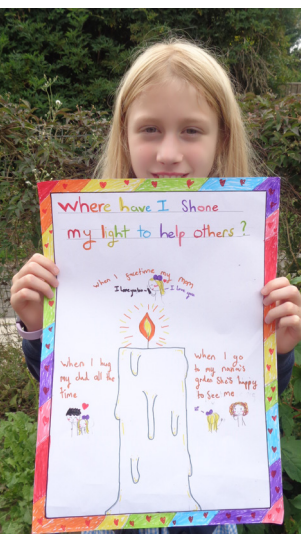 Where have I Shone
my light to help others?
when I facetime my Mom
I love you too
I love you
When I hug
my dad all the
time
When I go
to my nana's
graden She's happy
to see me